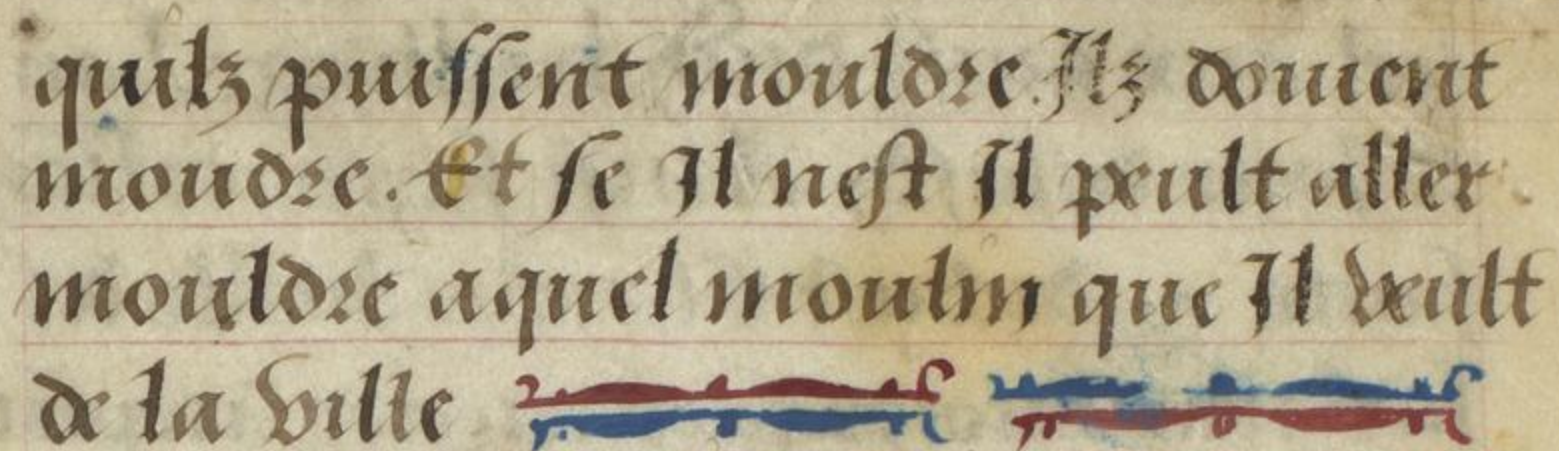 quilz puissent mouldre. Ilz doiuent
moudre. Et se Il nest Il peult aller
mouldre aquel moulin que Il veult
de la ville